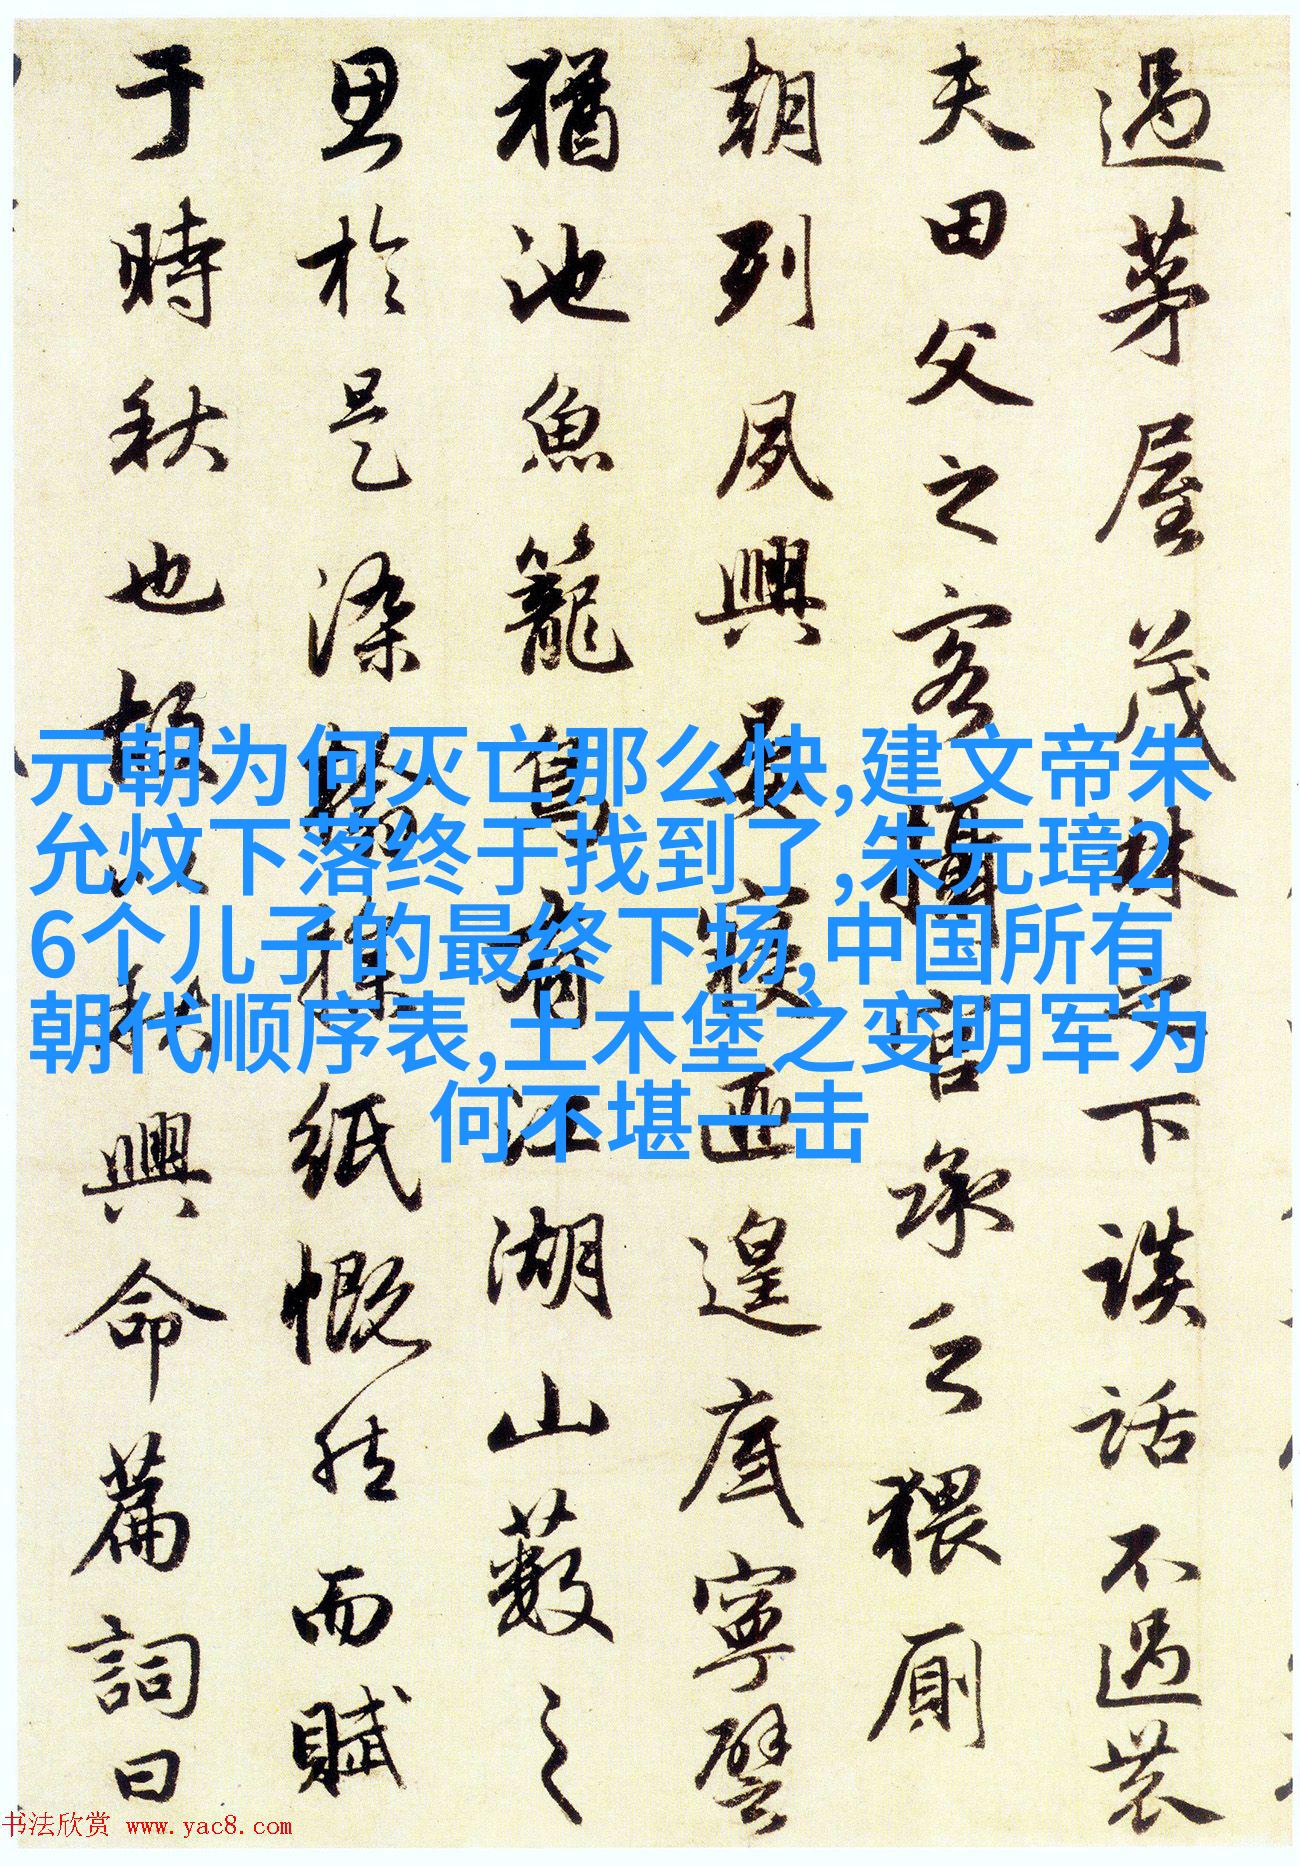 過茅屋茂林之下談話不過農
夫田父之客攝官承乏猥廁
朝列夙興晏寢匪遑底寧譬
猶池魚籠鳥有江湖山藪之
思於是染翰操紙慨然而賦
于時秋也故以秋興命篇詞曰
元朝为何灭亡那么快,建文帝朱
允炆下落终于找到了,朱元璋2
6个儿子的最终下场,中国所有
朝代顺序表,土木堡之变明军为
何不堪一击
书法欣赏 www.yac8.com